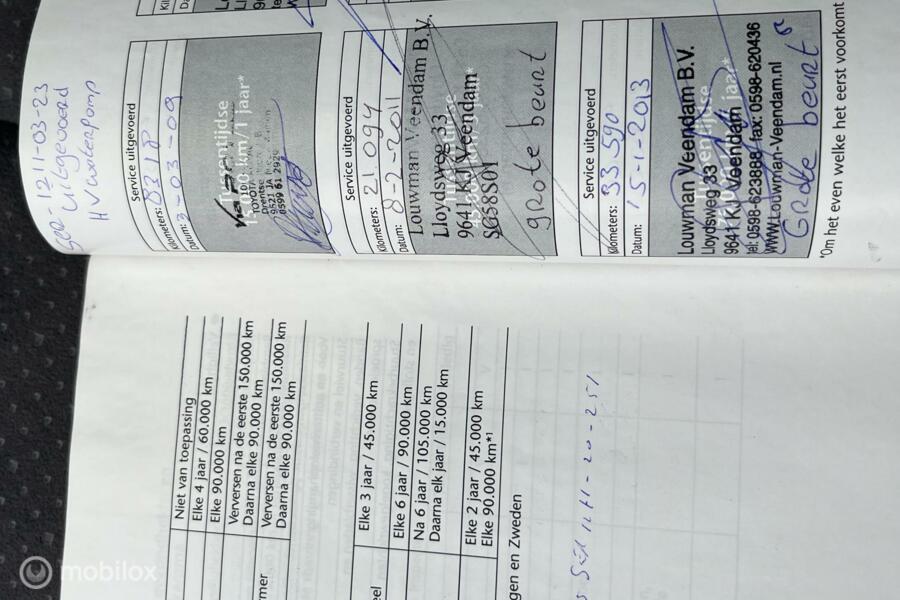 Uitgevoerd
H V waterpomp
Service uitgevoerd
Kilometers: 8318
Datum: 3-03-09
TOYOTA
9521 JA
0599 61 2929
Service uitgevoerd
Kilometers: 21.094
Datum: 8-2-2011
Louwman Veendam B.V.
Lloydsweg 33
9641 KJ Veendam
grote beurt
Service uitgevoerd
Kilometers: 33.590
Datum: 15-1-2013
Louwman Veendam B.V.
Lloydsweg 33
9641 KJ Veendam
tel: 0598-623888 / fax: 0598-620436
www.Louwman-Veendam.nl
Grote beurt
*Om het even welke het eerst voorkomt
Niet van toepassing
Elke 4 jaar / 60.000 km
Elke 90.000 km
Verversen na de eerste 150.000 km
Daarna elke 90.000 km
Verversen na de eerste 150.000 km
Daarna elke 90.000 km
Elke 3 jaar / 45.000 km
Elke 6 jaar / 90.000 km
Na 6 jaar / 105.000 km
Daarna elk jaar / 15.000 km
Elke 2 jaar / 45.000 km
Elke 90.000 km*¹
gen en Zweden
mobilox